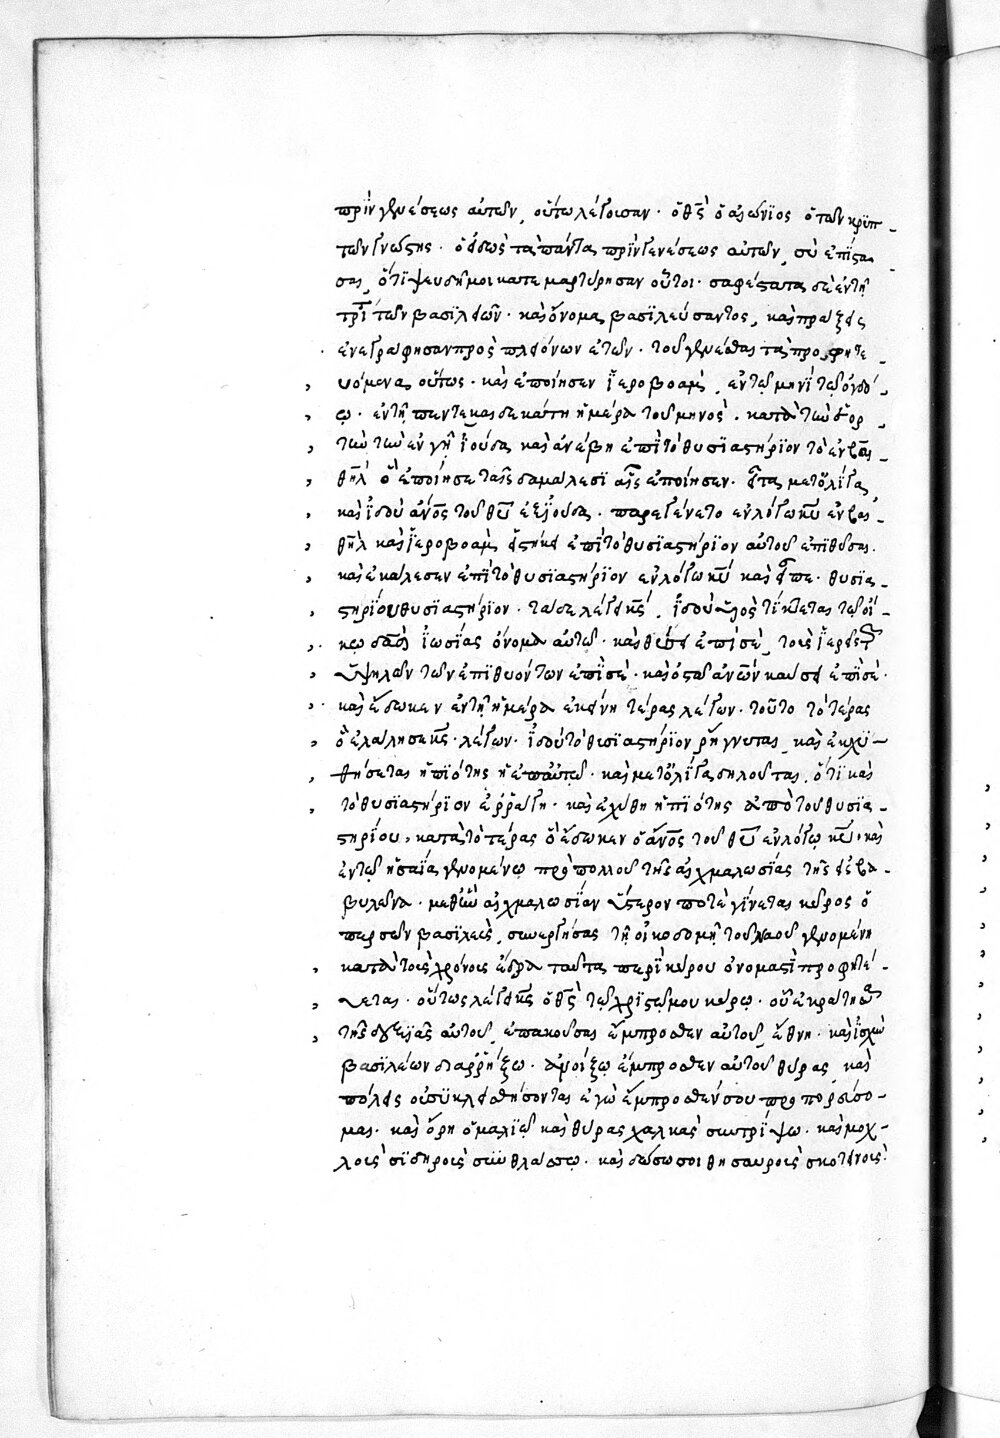 πρὶν γενέσεως αὐτῶν, οὕτω λέγουσαν· ὁ θ̅ς̅ ὁ αἰώνιος ὁ τῶν κρυπ-
τῶν γνώστης· ὁ εἰδὼς τὰ πάντα πρὶν γενέσεως αὐτῶν, σὺ ἐπίστα-
σαι, ὅτι ψευδῆ μοι κατεμαρτύρησαν οὗτοι· σαφέστατα δὲ ἐν τῇ
τρίτῃ τῶν βασιλειῶν· καὶ ὄνομα βασιλεύσαντος, καὶ πράξεις
ἀνεγράφησαν πρὸ πλειόνων ἐτῶν· τοῦ γενέσθαι τὰ προφητευ-
όμενα οὕτως· καὶ ἐποίησεν ἱεροβοὰμ, ἐν τῷ μηνὶ τῷ ὀγδό-
ῳ· ἐν τῇ πεντεκαιδεκάτῃ ἡμέρα τοῦ μηνὸς· κατὰ τὴν ἑορ-
τὴν τὴν ἐν γῇ ἰούδα καὶ ἀνέβη ἐπὶ τὸ θυσιαστήριον τὸ ἐν βαι-
θὴλ ὃ ἐποίησε ταῖς δαμάλεσι αἷς ἐποίησεν· εἶτα μετ' ὀλίγα,
καὶ ἰδοὺ ἄν̅ο̅ς̅ τοῦ θ̅υ̅ ἐξ ἰούδα· παρεγένετο ἐν λόγω κ̅υ̅ ἐν βαι-
θὴλ καὶ ἱεροβοὰμ εἱστήκει ἐπὶ τὸ θυσιαστήριον αὐτοῦ ἐπιθῦσαι·
καὶ ἐκάλεσεν ἐπὶ τὸ θυσιαστήριον ἐν λόγω κ̅υ̅ καὶ εἶπε· θυσια-
στήριον θυσιαστήριον· τάδε λέγει κ̅ς̅, ἰδοὺ υἱὸς τίκτεται τῷ οἴ-
κῳ δα̅δ̅ ἰωσίας ὄνομα αὐτῷ· καὶ θύσει ἐπὶ σὲ, τοὺς ἱερεῖς τῶν
ὑψηλῶν τῶν ἐπιθυόντων ἐπὶ σὲ· καὶ ὀστᾶ ἀν̅ω̅ν̅ καύσει ἐπὶ σὲ·
καὶ ἔδωκεν ἐν τῇ ἡμέρα ἐκείνη τέρας λέγων· τοῦτο τὸ τέρας
ὃ ἐλάλησε κ̅ς̅· λέγων· ἰδοὺ τὸ θυσιαστήριον ῥήγνυται, καὶ ἐκχυ-
θήσεται ἡ πιότης ἡ ἐπ' αὐτῷ· καὶ μετ' ὀλίγα δηλοῦται, ὅτι καὶ
τὸ θυσιαστήριον ἐρράγη· καὶ ἐχύθη ἡ πιότης ἀπὸ τοῦ θυσια-
στηρίου, κατὰ τὸ τέρας ὃ ἔδωκεν ὁ ἄν̅ο̅ς̅ τοῦ θ̅υ̅ ἐν λόγῳ κ̅υ̅· καὶ
ἐν τῷ ἡσαΐα γενομένῳ πρὸ πολλοῦ τῆς αἰχμαλωσίας τῆς εἰς βα-
βυλῶνα· μεθ' ἣν αἰχμαλωσίαν ὕστερον ποτὲ γίνεται κῦρος ὁ
περσῶν βασιλεὺς, συνεργήσας τῇ οἰκοδομῇ τοῦ ναοῦ γενομένη
κατὰ τοὺς χρόνους ἔσδρα ταῦτα περὶ κύρου ὀνομαστὶ προφητεύ-
εται· οὕτως λέγει κ̅ς̅ ὁ θ̅ς̅ τῷ χριστῷ μου κύρῳ· οὗ ἐκράτησα
τῆς δεξιᾶς αὐτοῦ, ἐπακοῦσαι ἔμπροσθεν αὐτοῦ, ἔθνη· καὶ ἰσχὺν
βασιλέων διαρρήξω· ἀνοίξω ἔμπροσθεν αὐτοῦ θύρας, καὶ
πόλεις οὐ συγκλεισθήσονται ἐγὼ ἔμπροσθέν σου προπορεύσο-
μαι· καὶ ὄρη ὁμαλιῶ καὶ θύρας χαλκὰς συντρίψω· καὶ μοχ-
λοὺς σιδηροὺς συνθλάσω· καὶ δώσω σοι θησαυροὺς σκοτεινοὺς·